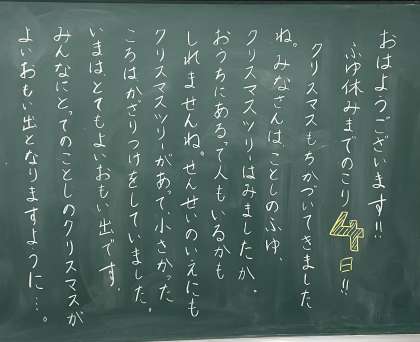 おはようございます!!
ふゆ休みまでのこり4日!!
クリスマスもちかづいてきました
ね。みなさんは、ことしのふゆ、
クリスマスツリーはみましたか。
おうちにあるって人もいるかも
しれませんね。せんせいのいえにも
クリスマスツリーがあって、小さかった
ころはかざりつけをしていました。
いまは、とてもよいおもい出です。
みんなにとってのことしのクリスマスが
よいおもい出となりますように…。